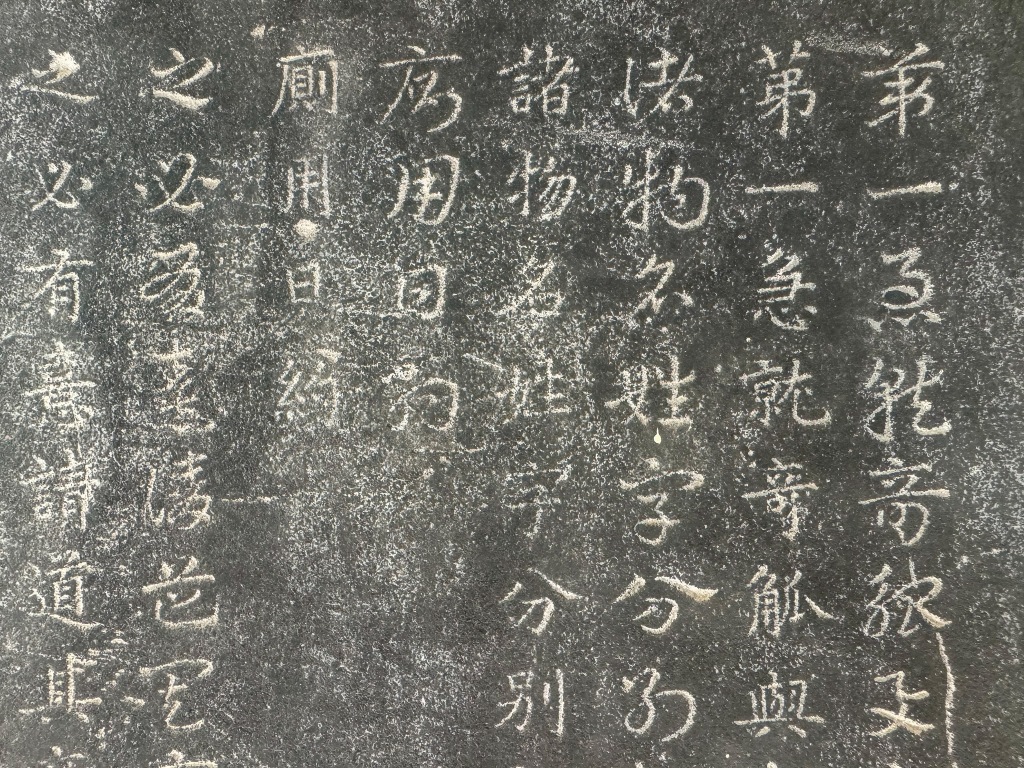 第一急就奇觚與
第一急就奇觚與
諸物名姓字分別
諸物名姓字分別
廁用日約
廁用日約
之必有憙請道其
之必有憙請道其